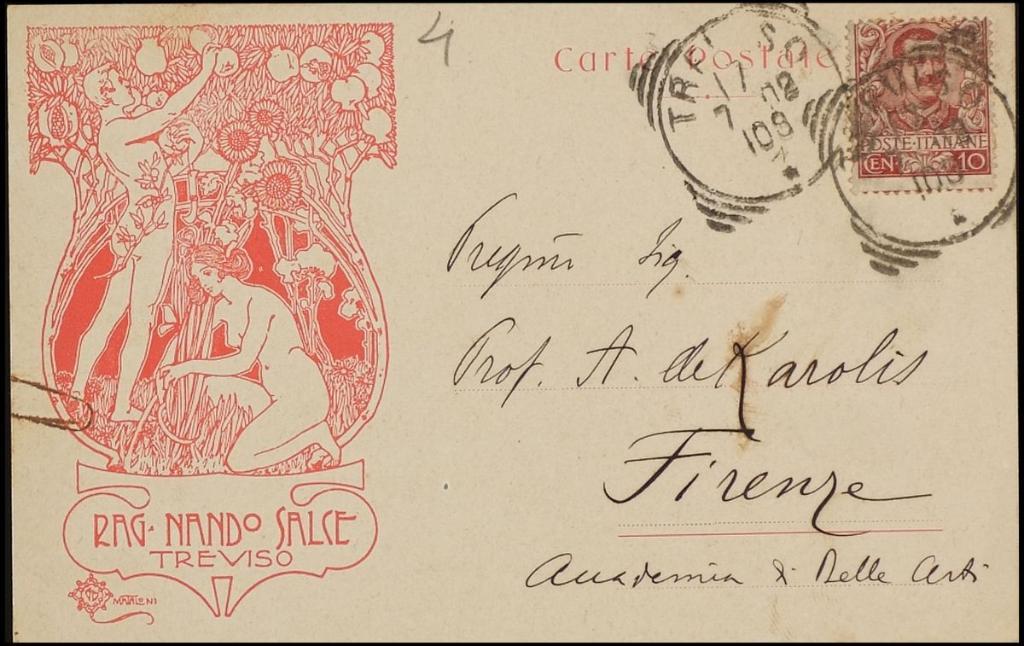 4
Carte Postale
TREVISO
17
7 08
POSTE·ITALIANE
CEN 10
Pregmi Sig.
Prof. A. de Karolis
Firenze
Accademia di Belle Arti
RAG· NANDO SALCE
TREVISO
MATALONI